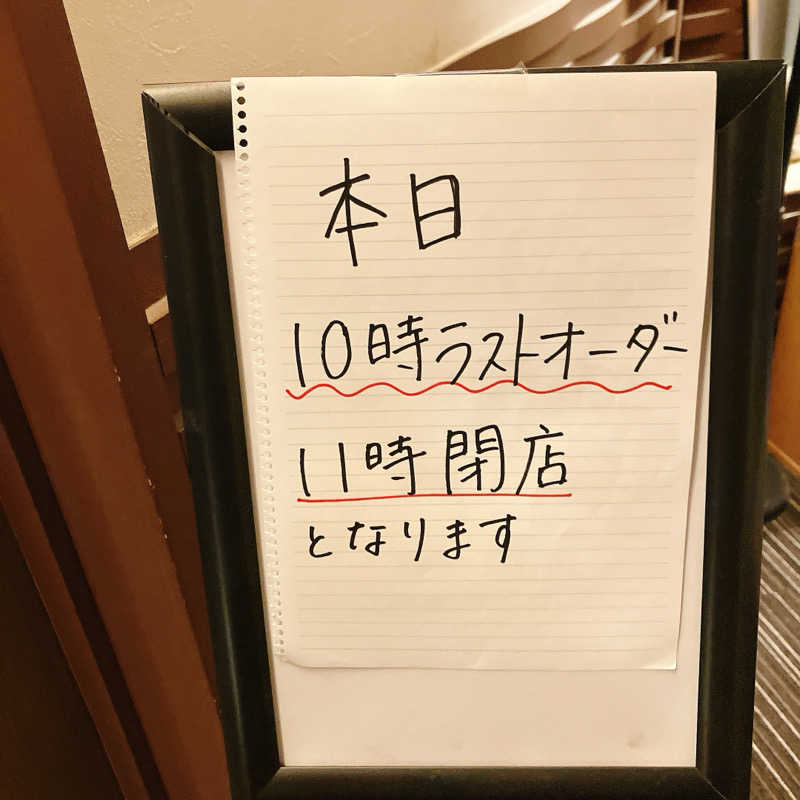 本日
10時ラストオーダー
11時閉店
となります